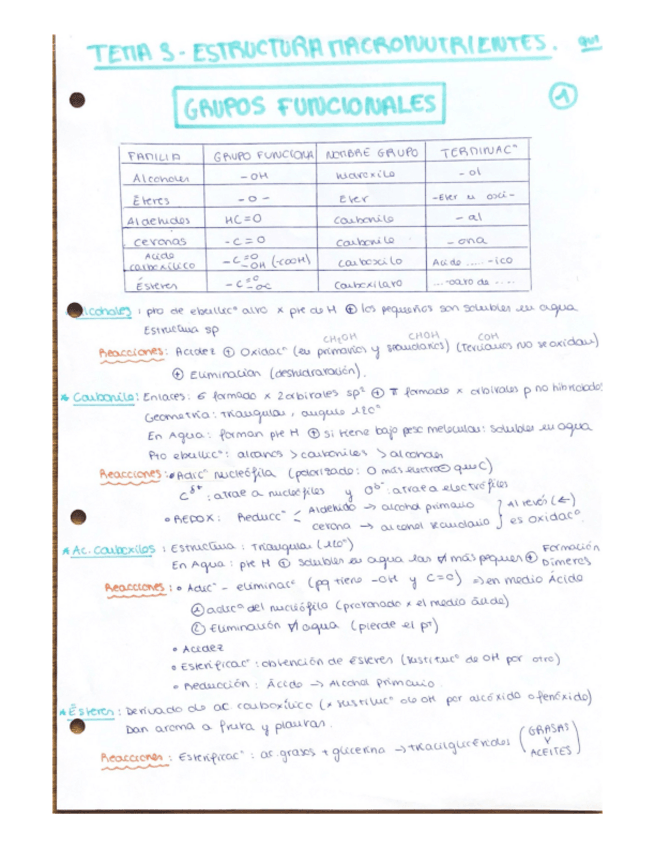 TEMA 3 - ESTRUCTURA MACRONUTRIENTES.
1
GRUPOS FUNCIONALES
FAMILIA GRUPO FUNCIONAL NOMBRE GRUPO TERMINACº
Alcoholes -OH hidroxilo -ol
Éteres -O- Eter -Eter u oxi-
Aldehidos HC=O Carbonilo -al
cetonas -C=O Carbonilo -ona
Acido carboxilico -C=O -OH (-COOH) carboxilo Acido ..... -ico
Ésteres -C=O -OC Carboxilato ...-oato de ....
Alcoholes: pto de ebullicº alto x pte de H ⊕ los pequeños son solubles en agua
Estructura sp
CH₂OH CHOH COH
Reacciones: Acidez ⊕ Oxidacº (en primarios y secundarios) (Terciarios no se oxidan)
⊕ Eliminación (deshidratación).
* Carbonilo: Enlaces: σ formado x 2 orbitales sp² ⊕ π formado x orbitales p no hibridado.
Geometría: triangular, angulo 120º
En Agua: forman pte H ⊕ si tiene bajo peso molecular: solubles en agua
Pto ebullicº: alcanos > carboniles > alcoholes
Reacciones: • Adicº nucleófila (polarizado: O más electro⊖ que C)
C δ+: atrae a nucleófiles y O δ-: atrae a electrófiles
• REDOX: Reduccº < Aldehido → alcohol primario
cetona → alcohol secundario } Al revés (←) es oxidacº.
* Ac. Carboxilos: Estructura: Triangular (120º)
En Agua: pte H ⊕ Solubles en agua las más pequeñ ⊕ Formación Dímeros
Reacciones: • Adicº - eliminacº (pq tiene -OH y C=O) ⇒ en medio Ácido
① adicº del nucleófilo (protonado x el medio ácido)
② Eliminación agua (pierde el pt)
• Acidez
• Esterificacº: obtención de ésteres (sustitucº de OH por otro)
• Reducción: Ácido → Alcohol primario.
* Ésteres: Derivado de ac. carboxílico (x sustitucº de OH por alcóxido o fenóxido)
Dan aroma a fruta y plantas.
Reacciones: Esterificacº: ac. grasos + glicerina → triacilgliceridos (GRASAS Y ACEITES)